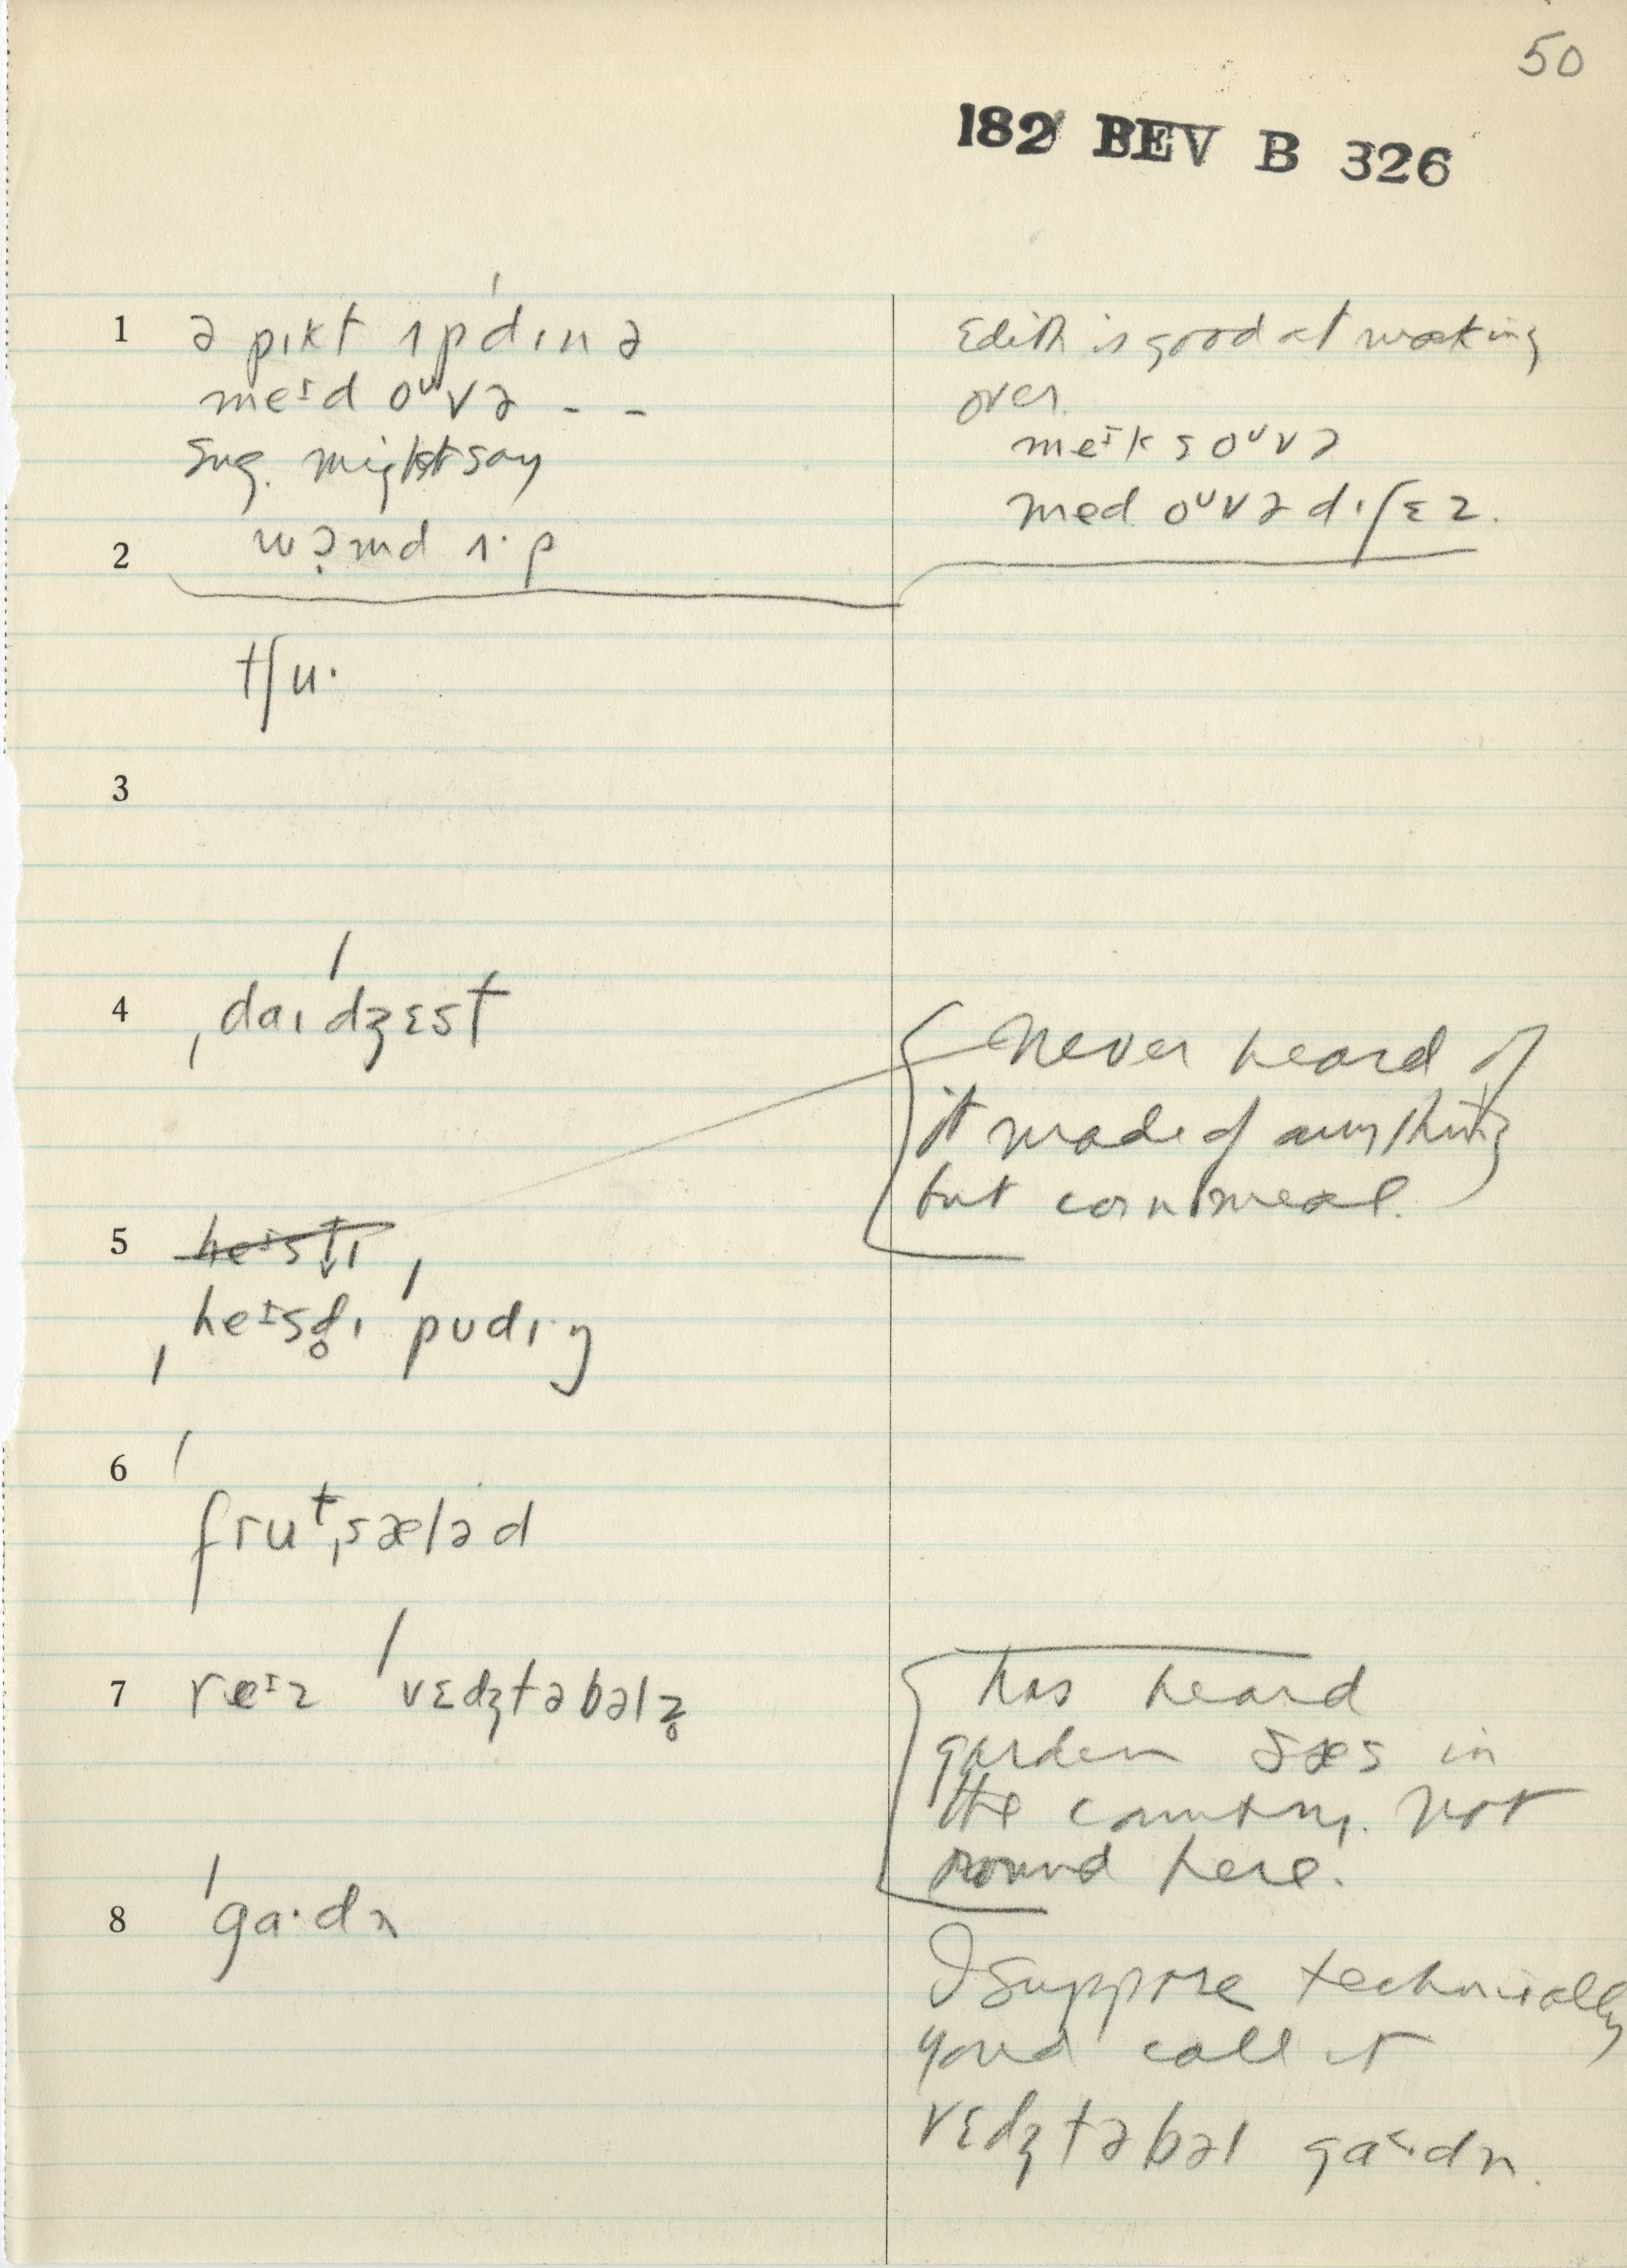 50
182 BEV B 326
1 ə pɪkt ʌpdɪnə
meɪd oᵘvə - -
Sug. might say
2 wɔ̣md ʌ·p
tʃu·
3
4 ˌdaɪˈdʒɛst
5 heɪstɪ
ˌheɪsd̥ɪ ˈpudɪ·ŋ
6 ˈfruᵗˌsæləd
7 reɪz ˈvɛdʒtəbəlz̥
8 ˈga·dn
Edith is good at making
over.
meɪks oᵘvə
med oᵘvə dɪʃɛz.
Never heard of
it made of anything
but cornmeal.
has heard
garden sæs in
the country. Not
round here.
I suppose technically
you'd call it
vɛdʒtəbəl ga˂·dn.